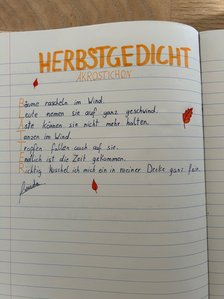 HERBSTGEDICHT
AKROSTICHON
Bäume rascheln im Wind.
Leute nemen sie auf ganz geschwind.
Äste können sie nicht mehr halten.
Tanzen im Wind.
Tropfen fallen auch auf sie.
Endlich ist die Zeit gekommen.
Richtig kuschel ich mich ein in meiner Decke ganz fein.